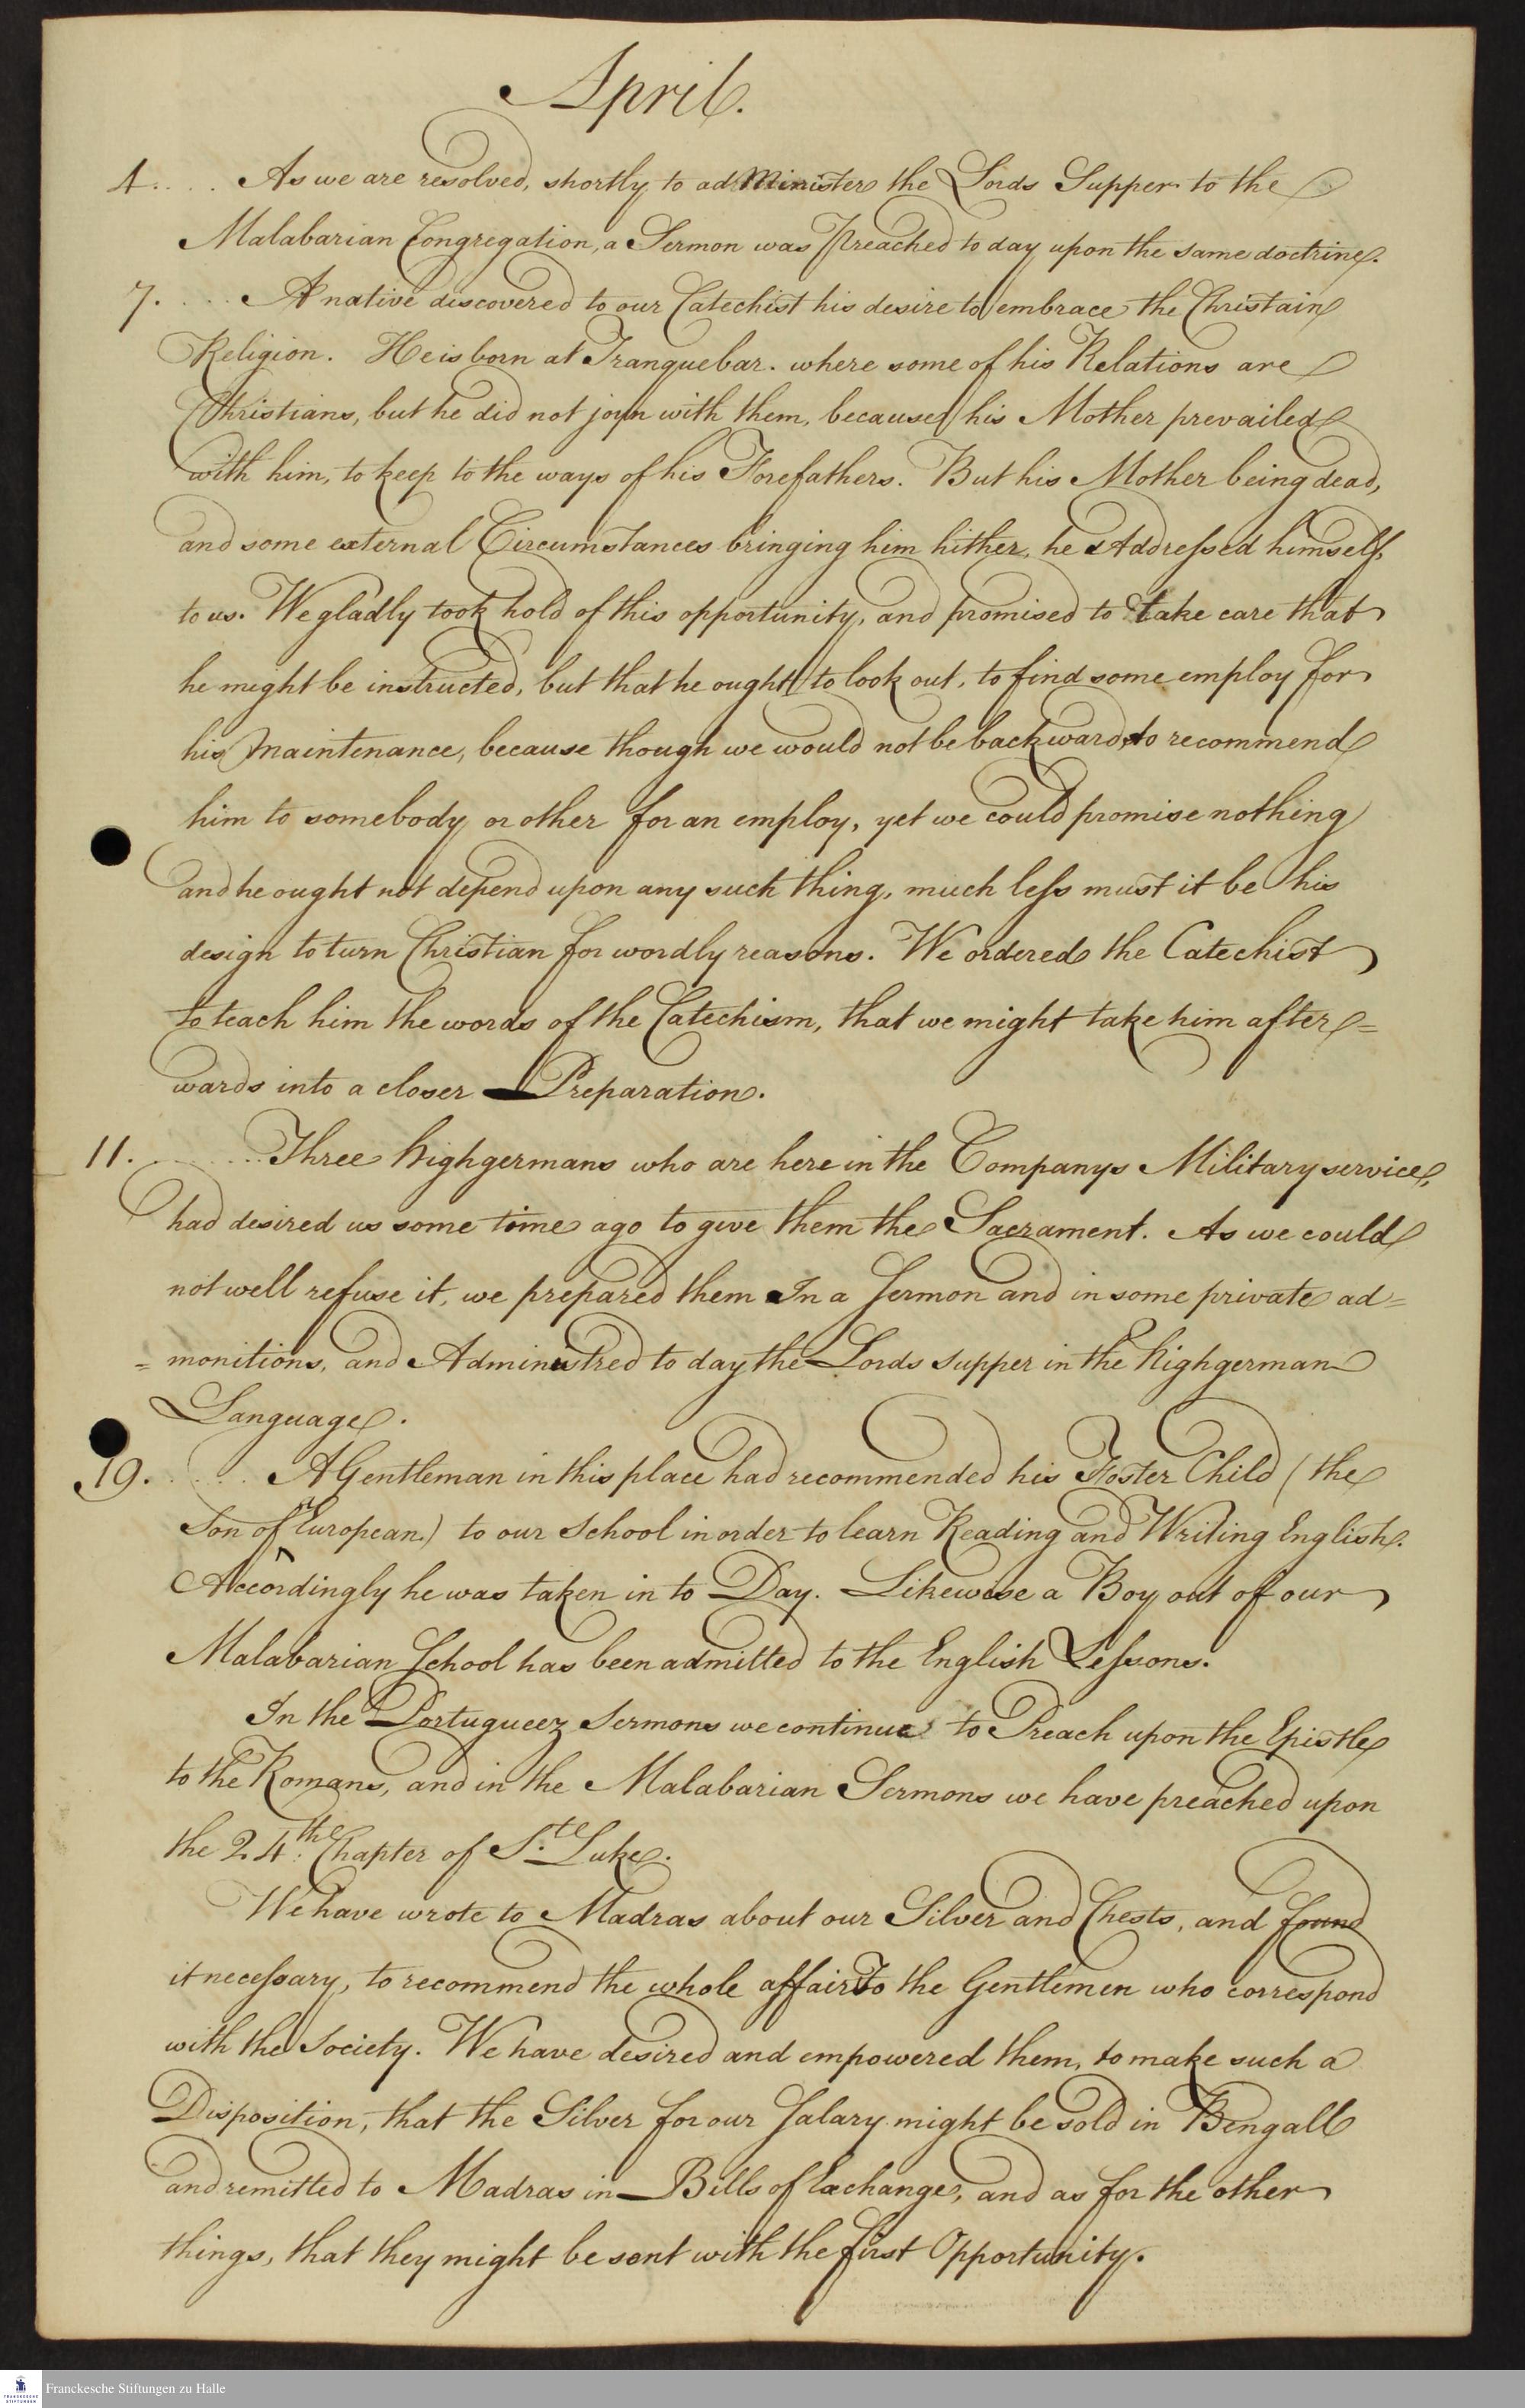 April.
4. . . . As we are resolved, shortly to adMinister the Lords Supper to the
Malabarian Congregation, a Sermon was Preached to day upon the same doctrine.
7. . . . A native discovered to our Catechist his desire to embrace the Christain
Religion. He is born at Tranquebar. where some of his Relations are
Christians, but he did not joyn with them, because his Mother prevailed
with him, to keep to the ways of his Forefathers. But his Mother being dead,
and some external Circumstances bringing him hither, he Addressed himself
to us. We gladly took hold of this opportunity, and promised to take care that
he might be instructed, but that he ought to look out, to find some employ for
his Maintenance, because though we would not be backward to recommend
him to somebody or other for an employ, yet we could promise nothing
and he ought not depend upon any such thing, much less must it be his
design to turn Christian for wordly reasons. We ordered the Catechist
to teach him the words of the Catechism, that we might take him after=
wards into a closer Preparation.
11. . . . Three Highgermans who are here in the Companys Military service,
had desired us some time ago to give them the Sacrament. As we could
not well refuse it, we prepared them In a Sermon and in some private ad=
=monitions, and Administred to day the Lords supper in the Highgerman
Language.
19. . . . A Gentleman in this place had recommended his Foster Child (the
Son of a European.) to our School in order to learn Reading and Writing English.
Accordingly he was taken in to Day. Likewise a Boy out of our
Malabarian School has been admitted to the English Lessons.
In the Portugueez Sermons we continue to Preach upon the Epistle
to the Romans, and in the Malabarian Sermons we have preached upon
the 24.the Chapter of S.te Luke.
We have wrote to Madras about our Silver and Chests, and found
it necessary, to recommend the whole affair To the Gentlemen who correspond
with the Society. We have desired and empowered them, to make such a
Disposition, that the Silver for our Salary might be sold in Bengall
and remitted to Madras in Bills of Exchange, and as for the other
things, that they might be sent with the first Opportunity.
Franckesche Stiftungen zu Halle